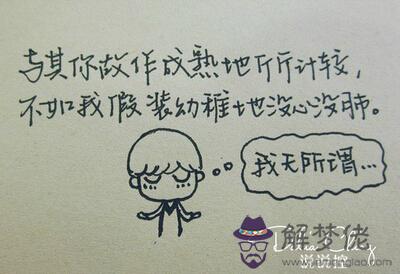 与其你故作成熟地斤斤计较，
不如我假装幼稚地没心没肺。
我无所谓...
说说控
解梦佬
www.jiemenglao.com